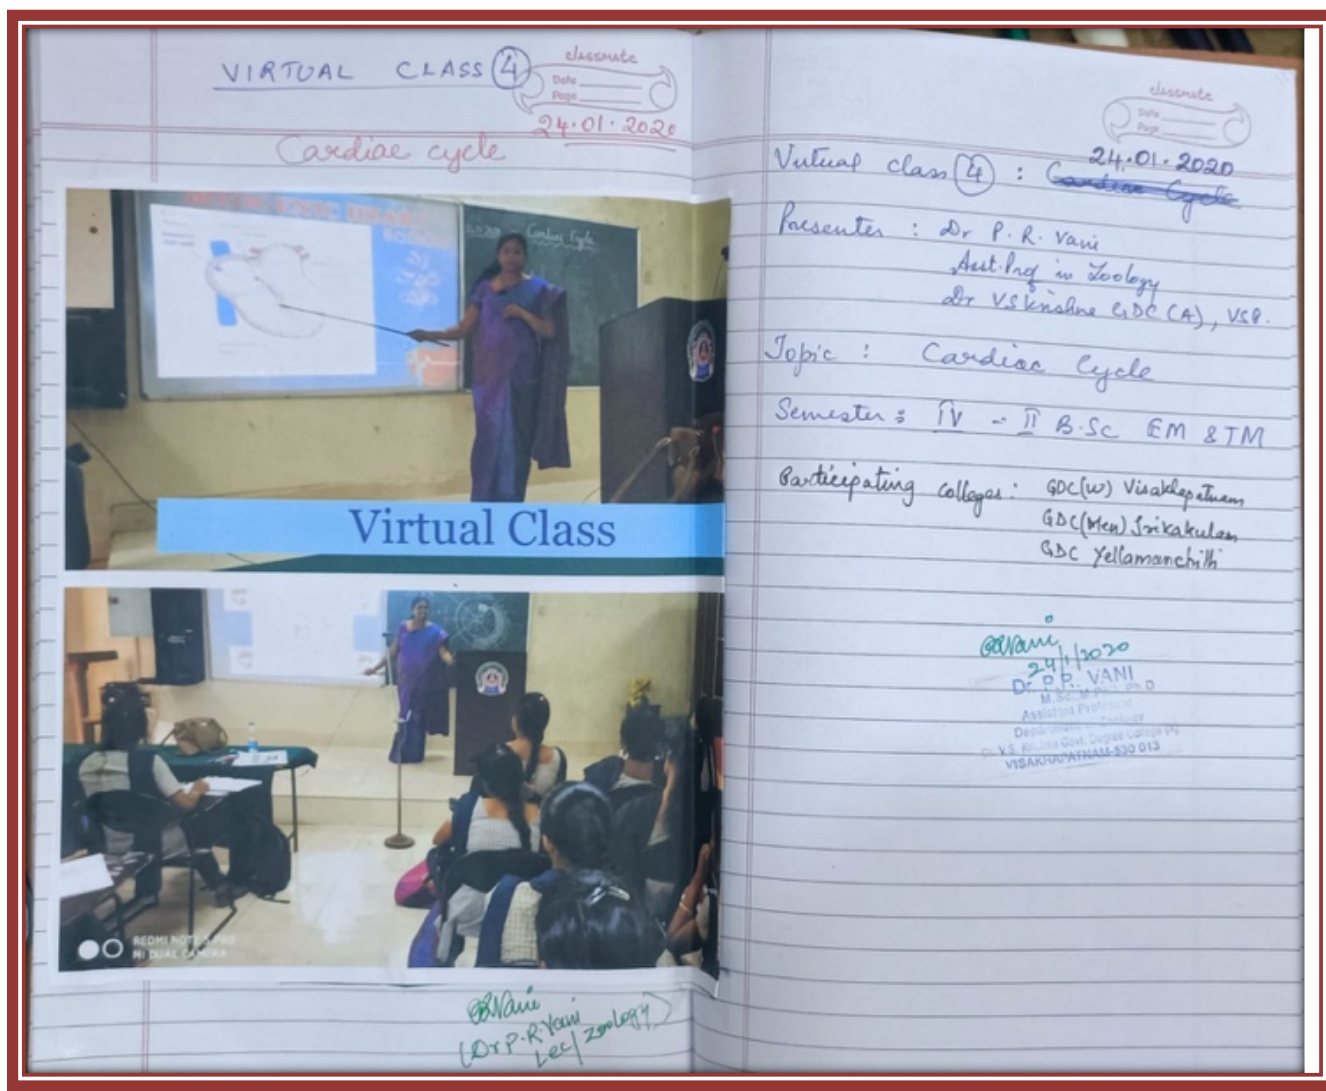 VIRTUAL CLASS 4
classmate
Date
Page
24.01.2020
Cardiac cycle
Cardiac Cycle
Virtual Class
REDMI NOTE 5 PRO
MI DUAL CAMERA
PRVani
(Dr P.R. Vani
Lec/ Zoology)
classmate
Date
Page
24.01.2020
Virtual class 4 : Cardiac Cycle
Presenter : Dr P. R. Vani
Asst. Prof in Zoology
Dr VS Krishna GDC (A), VSP.
Topic : Cardiac Cycle
Semester : IV - II B.Sc EM & TM
Participating colleges : GDC(W) Visakhapatnam
GDC(Men) Srikakulam
GDC Yellamanchilli
PRVani
24/1/2020
Dr. P.R. VANI
M.Sc., M.Phil., Ph.D
Assistant Professor
Department of Zoology
Dr. V.S. Krishna Govt. Degree College (A)
VISAKHAPATNAM-530 013